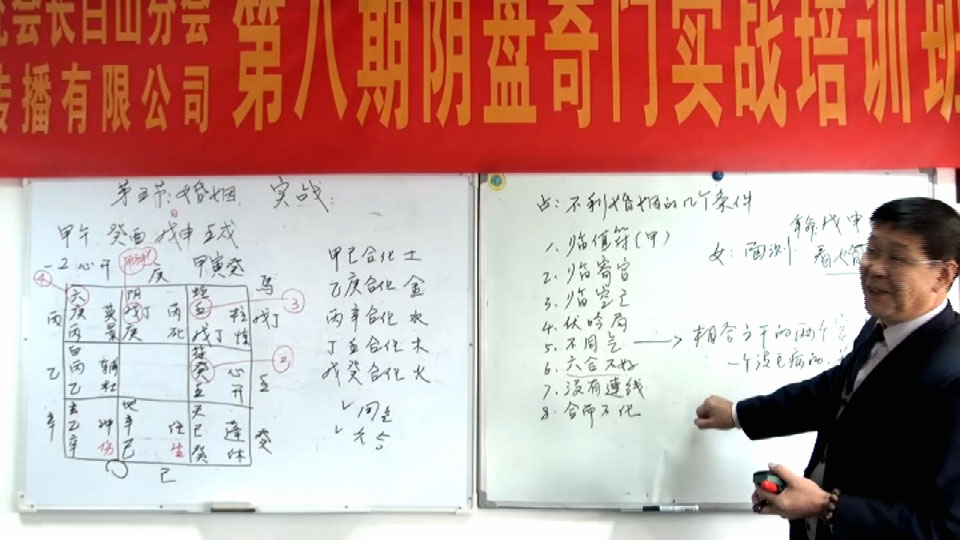 会长白山分会
传播有限公司
第八期阴盘奇门实战培训班
第五节:婚姻 实战:
日
甲午 癸酉 戊申 壬戌
-2 心开 庚 甲寅癸
④ 马
六 阴 蛇
丙 庚 英 戊丁 丙 壬 柱 戊丁 ③
丙 景 庚 死 戊丁 惊
白 癸 ②
乙 丙 辅 心 壬
乙 杜 壬 开
玄 地 天
辛 乙 冲 辛 任 己 蓬 癸
辛 伤 己 生 癸 休
己
甲己合化土
乙庚合化金
丙辛合化水
丁壬合化木
戊癸合化火
✓ 同
✓ 六合
占:不利婚姻的几个条件
1. 临值符(甲)
2. 临寄宫
3. 临空亡
4. 伏吟局
5. 不同气 → 相合之干的两个
6. 六合不好 一个没
7. 没有连线
8. 合而不化
年 戊申
女:面测: 看